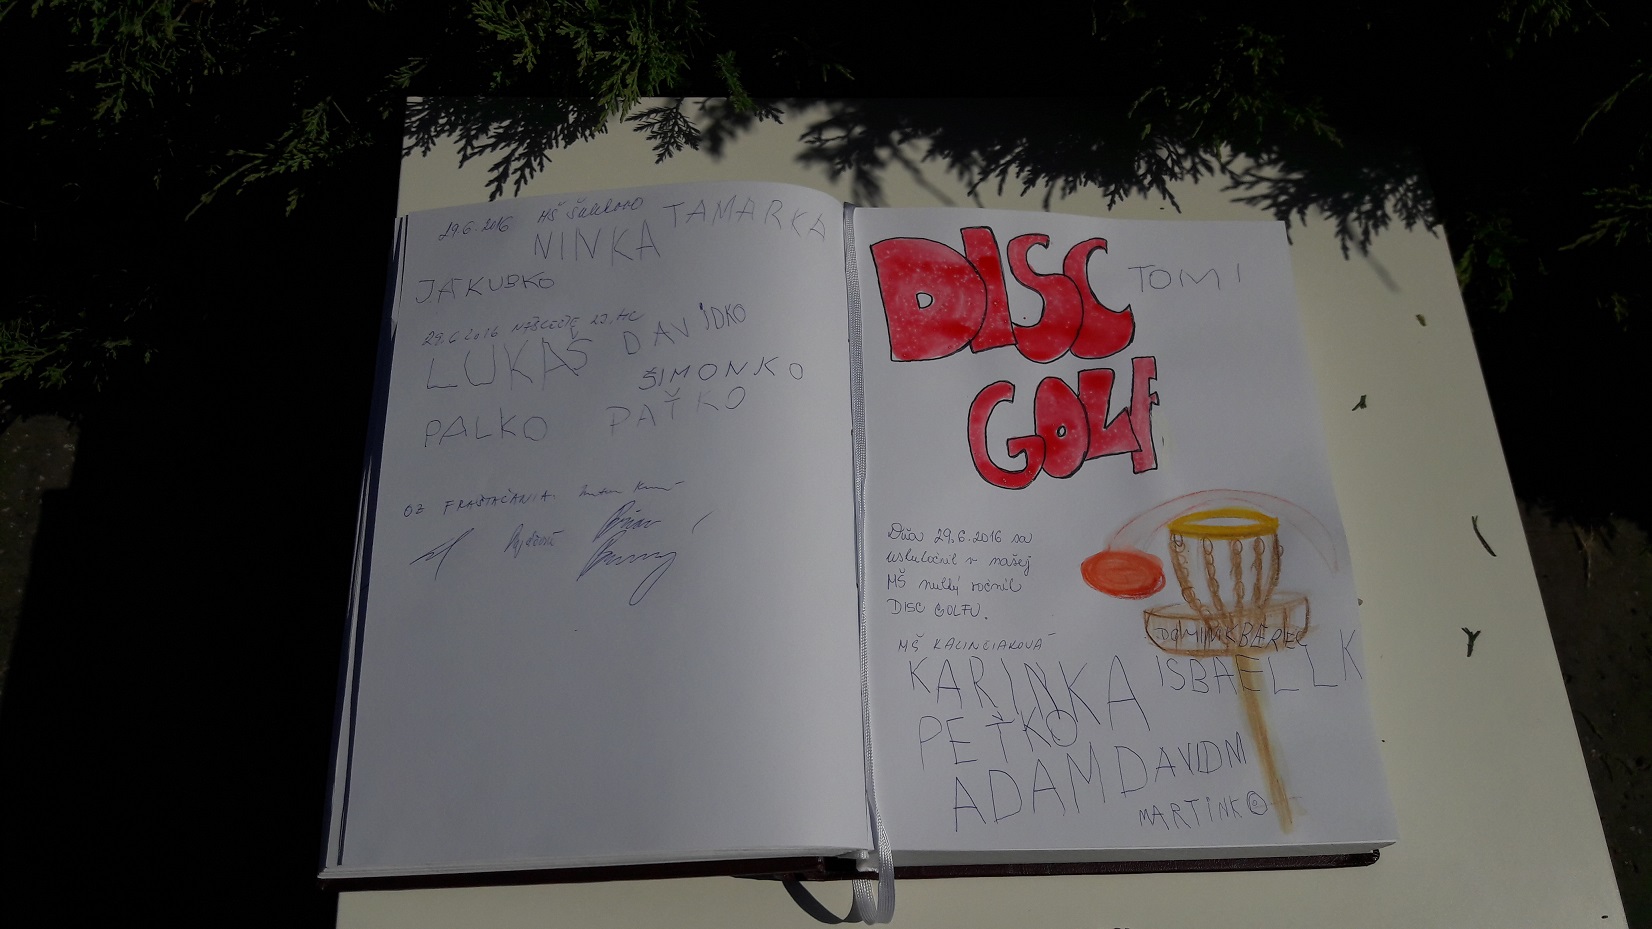 29.6.2016 MŠ
NINKA TAMARKA
JAKUBKO
29.6.2016
LUKÁŠ DAVIDKO
ŠIMONKO
PALKO PAŤKO
OZ FRAŠTAČANIA
DISC
TOMI
GOLF
Dňa 29.6.2016 sa
uskutočnil v našej
MŠ nultý ročník
DISC GOLFU.
MŠ KALINČIAKOVÁ
DOMINIK BEREC
KARINKA ISBAEL LK
PEŤKO
ADAM DAVIDM
MARTINKO